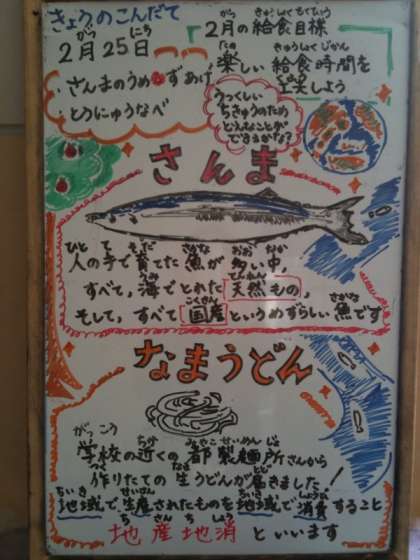 きょうのこんだて
2月25日
・さんまのうめ ずあげ
・とうにゅうなべ
2月の給食目標
楽しい給食時間を
工夫しよう
うつくしい
ちきゅうのため
どんなことが
できるかな?
さんま
人の手で育てた魚が多い中、
すべて、海でとれた 天然もの、
そして、すべて 国産 というめずらしい魚です
なまうどん
学校の近くの都製麺所さんから
作りたての生うどんが届きました!
地域で生産されたものを地域で消費すること
地産地消といいます